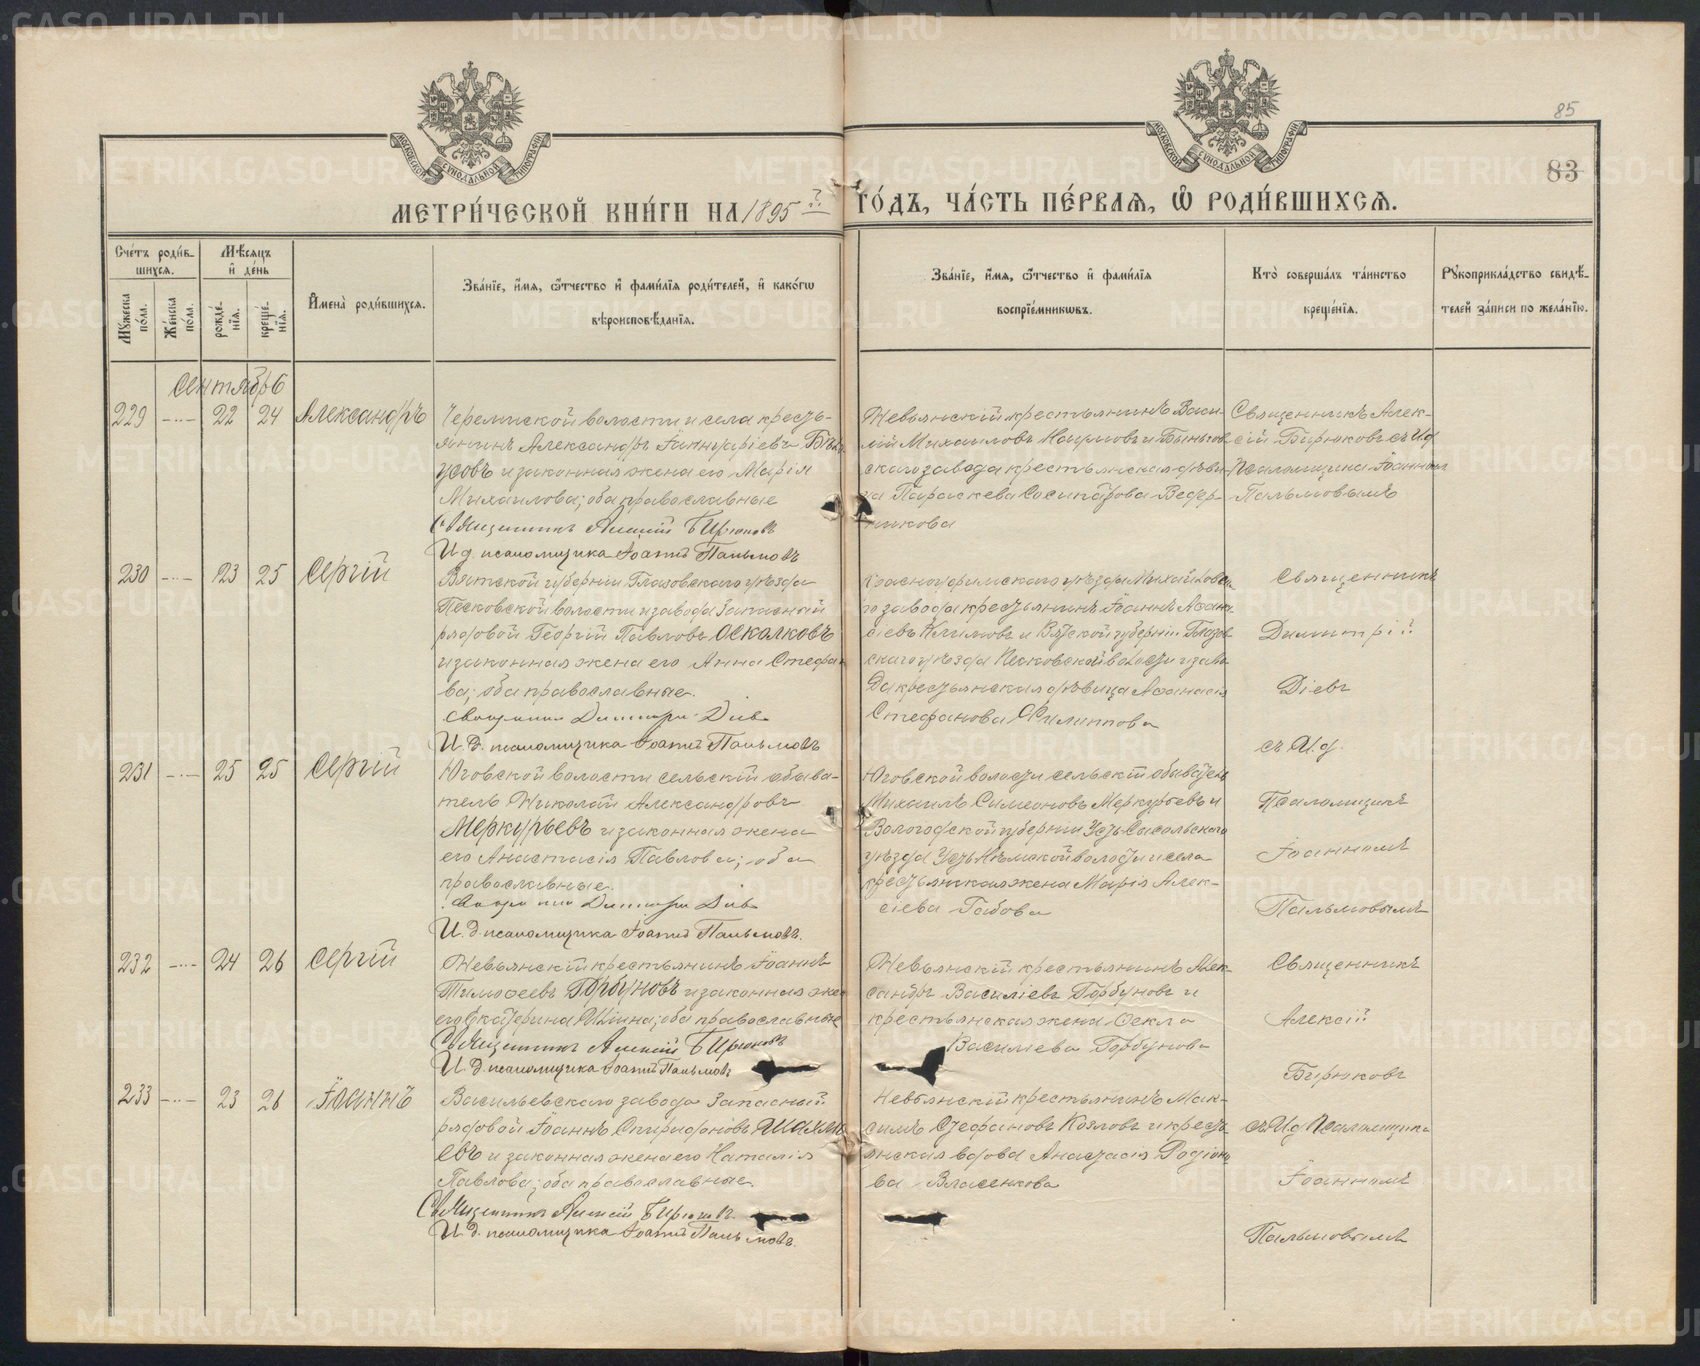 METRIKI.GASO-URAL.RU
МОСКОВСКОЙ СѴНОДАЛЬНОЙ ТИПОГРАФІИ
МОСКОВСКОЙ СѴНОДАЛЬНОЙ ТИПОГРАФІИ
85
83
МЕТРИ́ЧЕСКОЙ КНИ́ГИ НА 1895 й ГО́ДЪ, ЧА́СТЬ ПЕ́РВАЯ, Ѽ РОДИ́ВШИХСЯ.
Сче́тъ роди́в-
шихся.
Мѣ́сяцъ
и҆ де́нь
Му́жеска по́ла.
Же́нска по́ла.
рожде́-нїя.
креще́-нїя.
И҆мена̀ роди́вшихся.
Зва́нїе, и҆́мя, ѻ҆́тчество и҆ фами́лїя роди́телей, и҆ како́гѡ
вѣроисповѣ́данїя.
Зва́нїе, и҆́мя, ѻ҆́тчество и҆ фами́лїя
воспрїе́мникѡвъ.
Кто̀ соверша́лъ та́инство
креще́нїя.
Рꙋкоприкла́дство свидѣ́-
телей за́писи по жела́нїю.
Сентябрь
229 -..- 22 24 Александръ
Черемиской волости и села кресть-
янинъ Александръ Іаннуаріевъ
усовъ и законная жена его Марія
Михаилова; оба православные
Священникъ Алексій Бирюковъ
И д псаломщика Іоаннъ Пальмовъ
Невьянскій крестьянинъ Васи-
лій Михаиловъ Наумовъ и Быньгов-
скаго завода крестьянская дѣви-
ца Параскева Сосипатрова Ведер-
никова
Священникъ Алек-
сій Бирюковъ съ И.д.
Псаломщика Іоанномъ
Пальмовымъ
230 -..- 23 25 Сергій
Вятской губерніи Глазовскаго уѣзда
Песковской волости и завода Запасный
рядовой Георгій Павловъ Осколковъ
и законная жена его Анна Стефано
ва; оба православные.
Священник Димитрій Діевъ
И. д. псаломщика Іоаннъ Пальмовъ
Красноуфимскаго уѣзда Михайловска-
го завода крестьянинъ Іоаннъ Аѳана-
сіевъ Климовъ и Вятской губерніи Глазов
скаго уѣзда Песковской волости и заво
да крестьянская дѣвица Аѳанасія
Стефанова Филиппова
Священникъ
Димитрій
Діевъ
съ И.д.
Псаломщик
Іоанномъ
Пальмовымъ
231 -..- 25 25 Сергій
Юговской волости сельскій обыва-
тель Николай Александровъ
Меркурьевъ и законная жена
его Анастасія Павлова; оба
православные.
Священник Димитрій Діевъ
И. д. псаломщика Іоаннъ Пальмовъ.
Юговской волости сельскій обыватель
Михаилъ Симеоновъ Меркурьевъ и
Вологодской губерніи Усть-Сысольскаго
уѣзда Усть-Немской волости и села
крестьянская жена Марія Алек-
сіева Габова
232 -..- 24 26 Сергій
Невьянскій крестьянинъ Іоаннъ
Тимоѳеевъ Горбуновъ и законная жена
его Екатерина; оба православные
Священникъ Алексій Бирюковъ
И. д. псаломщика Іоаннъ Пальмовъ
Невьянскій крестьянинъ Алек-
сандръ Василіевъ Горбуновъ и
крестьянская жена Ѳекла
Василіева Горбунова
Священникъ
Алексій
Бирюковъ
съ И.д. Псаломщика
Іоанномъ
Пальмовымъ
233 -..- 23 26 Іоаннъ
Васильевскаго завода Запасный
рядовой Іоаннъ Спиридоновъ
евъ и законная жена его Наталія
Павлова; оба православные.
Священникъ Алексій Бирюковъ.
И. д. псаломщика Іоаннъ Пальмовъ.
Невьянскій крестьянинъ Мак-
симъ Стефановъ Козловъ и кресть-
янская вдова Анастасія Родіоно
ва Власенкова